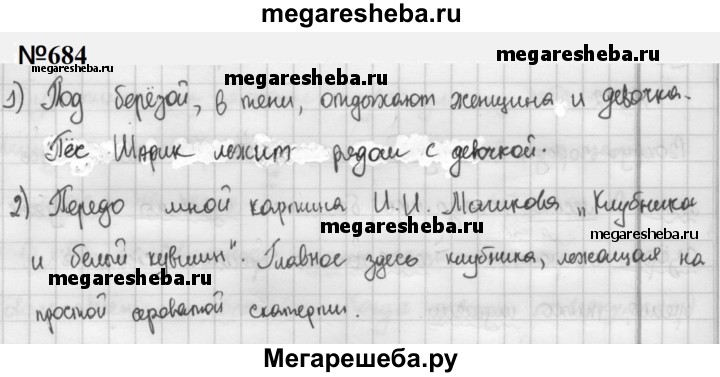 megaresheba.ru
№684
megaresheba.ru
megaresheba.ru
megaresheba.ru
1) Под берёзой, в тени, отдыхают женщина и девочка.
Пёс Шарик лежит рядом с девочкой.
2) Передо мной картина И.И. Машкова „Клубника
megaresheba.ru
megaresheba.ru
и белый кувшин". Главное здесь клубника, лежащая на
megaresheba.ru
простой сероватой скатерти.
Мегарешеба.ру